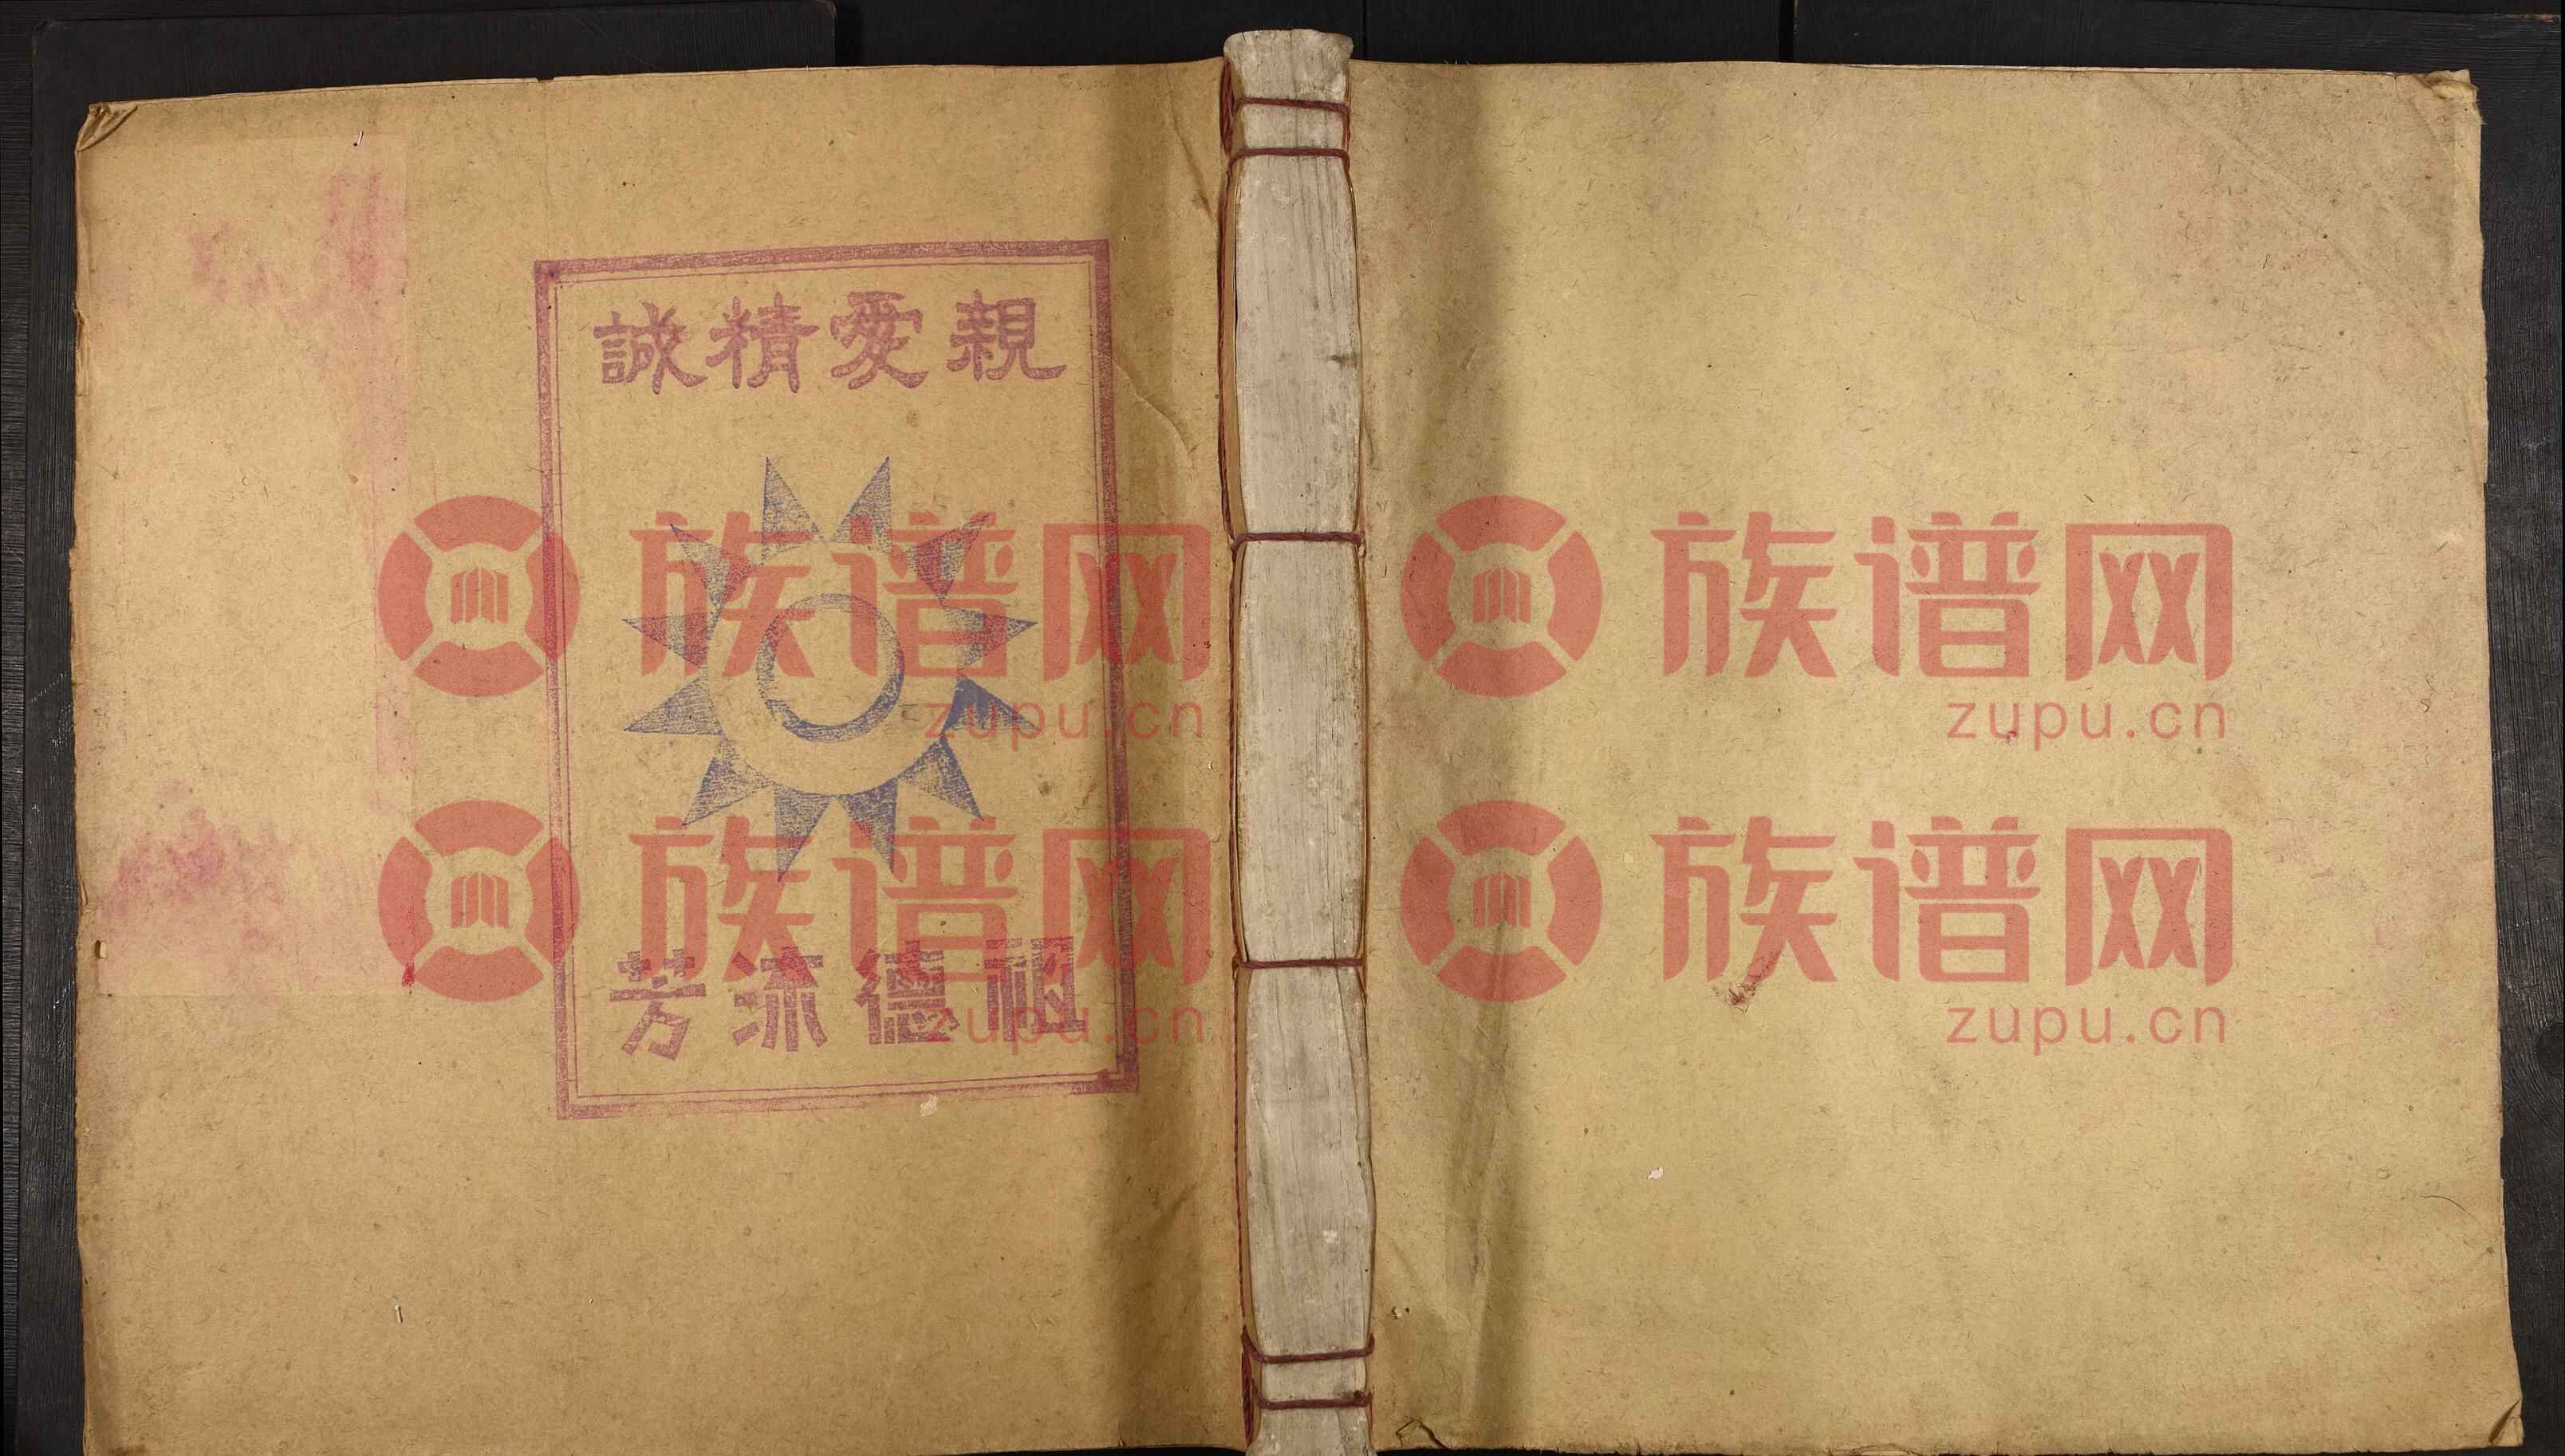 親愛精誠
祖德流芳
族谱网
zupu.cn
族谱网
zupu.cn
族谱网
zupu.cn
族谱网
zupu.cn